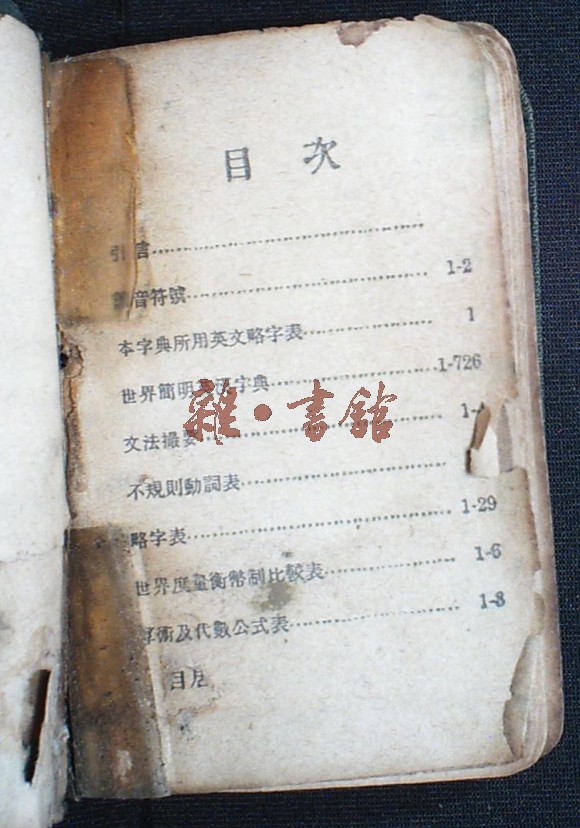 目次
引言
音符號 1-2
本字典所用英文略字表 1
世界簡明英漢字典 1-726
文法撮要 1-
不規則動詞表
略字表 1-29
世界度量衡幣制比較表 1-6
算術及代數公式表 1-3
目
雜·書館